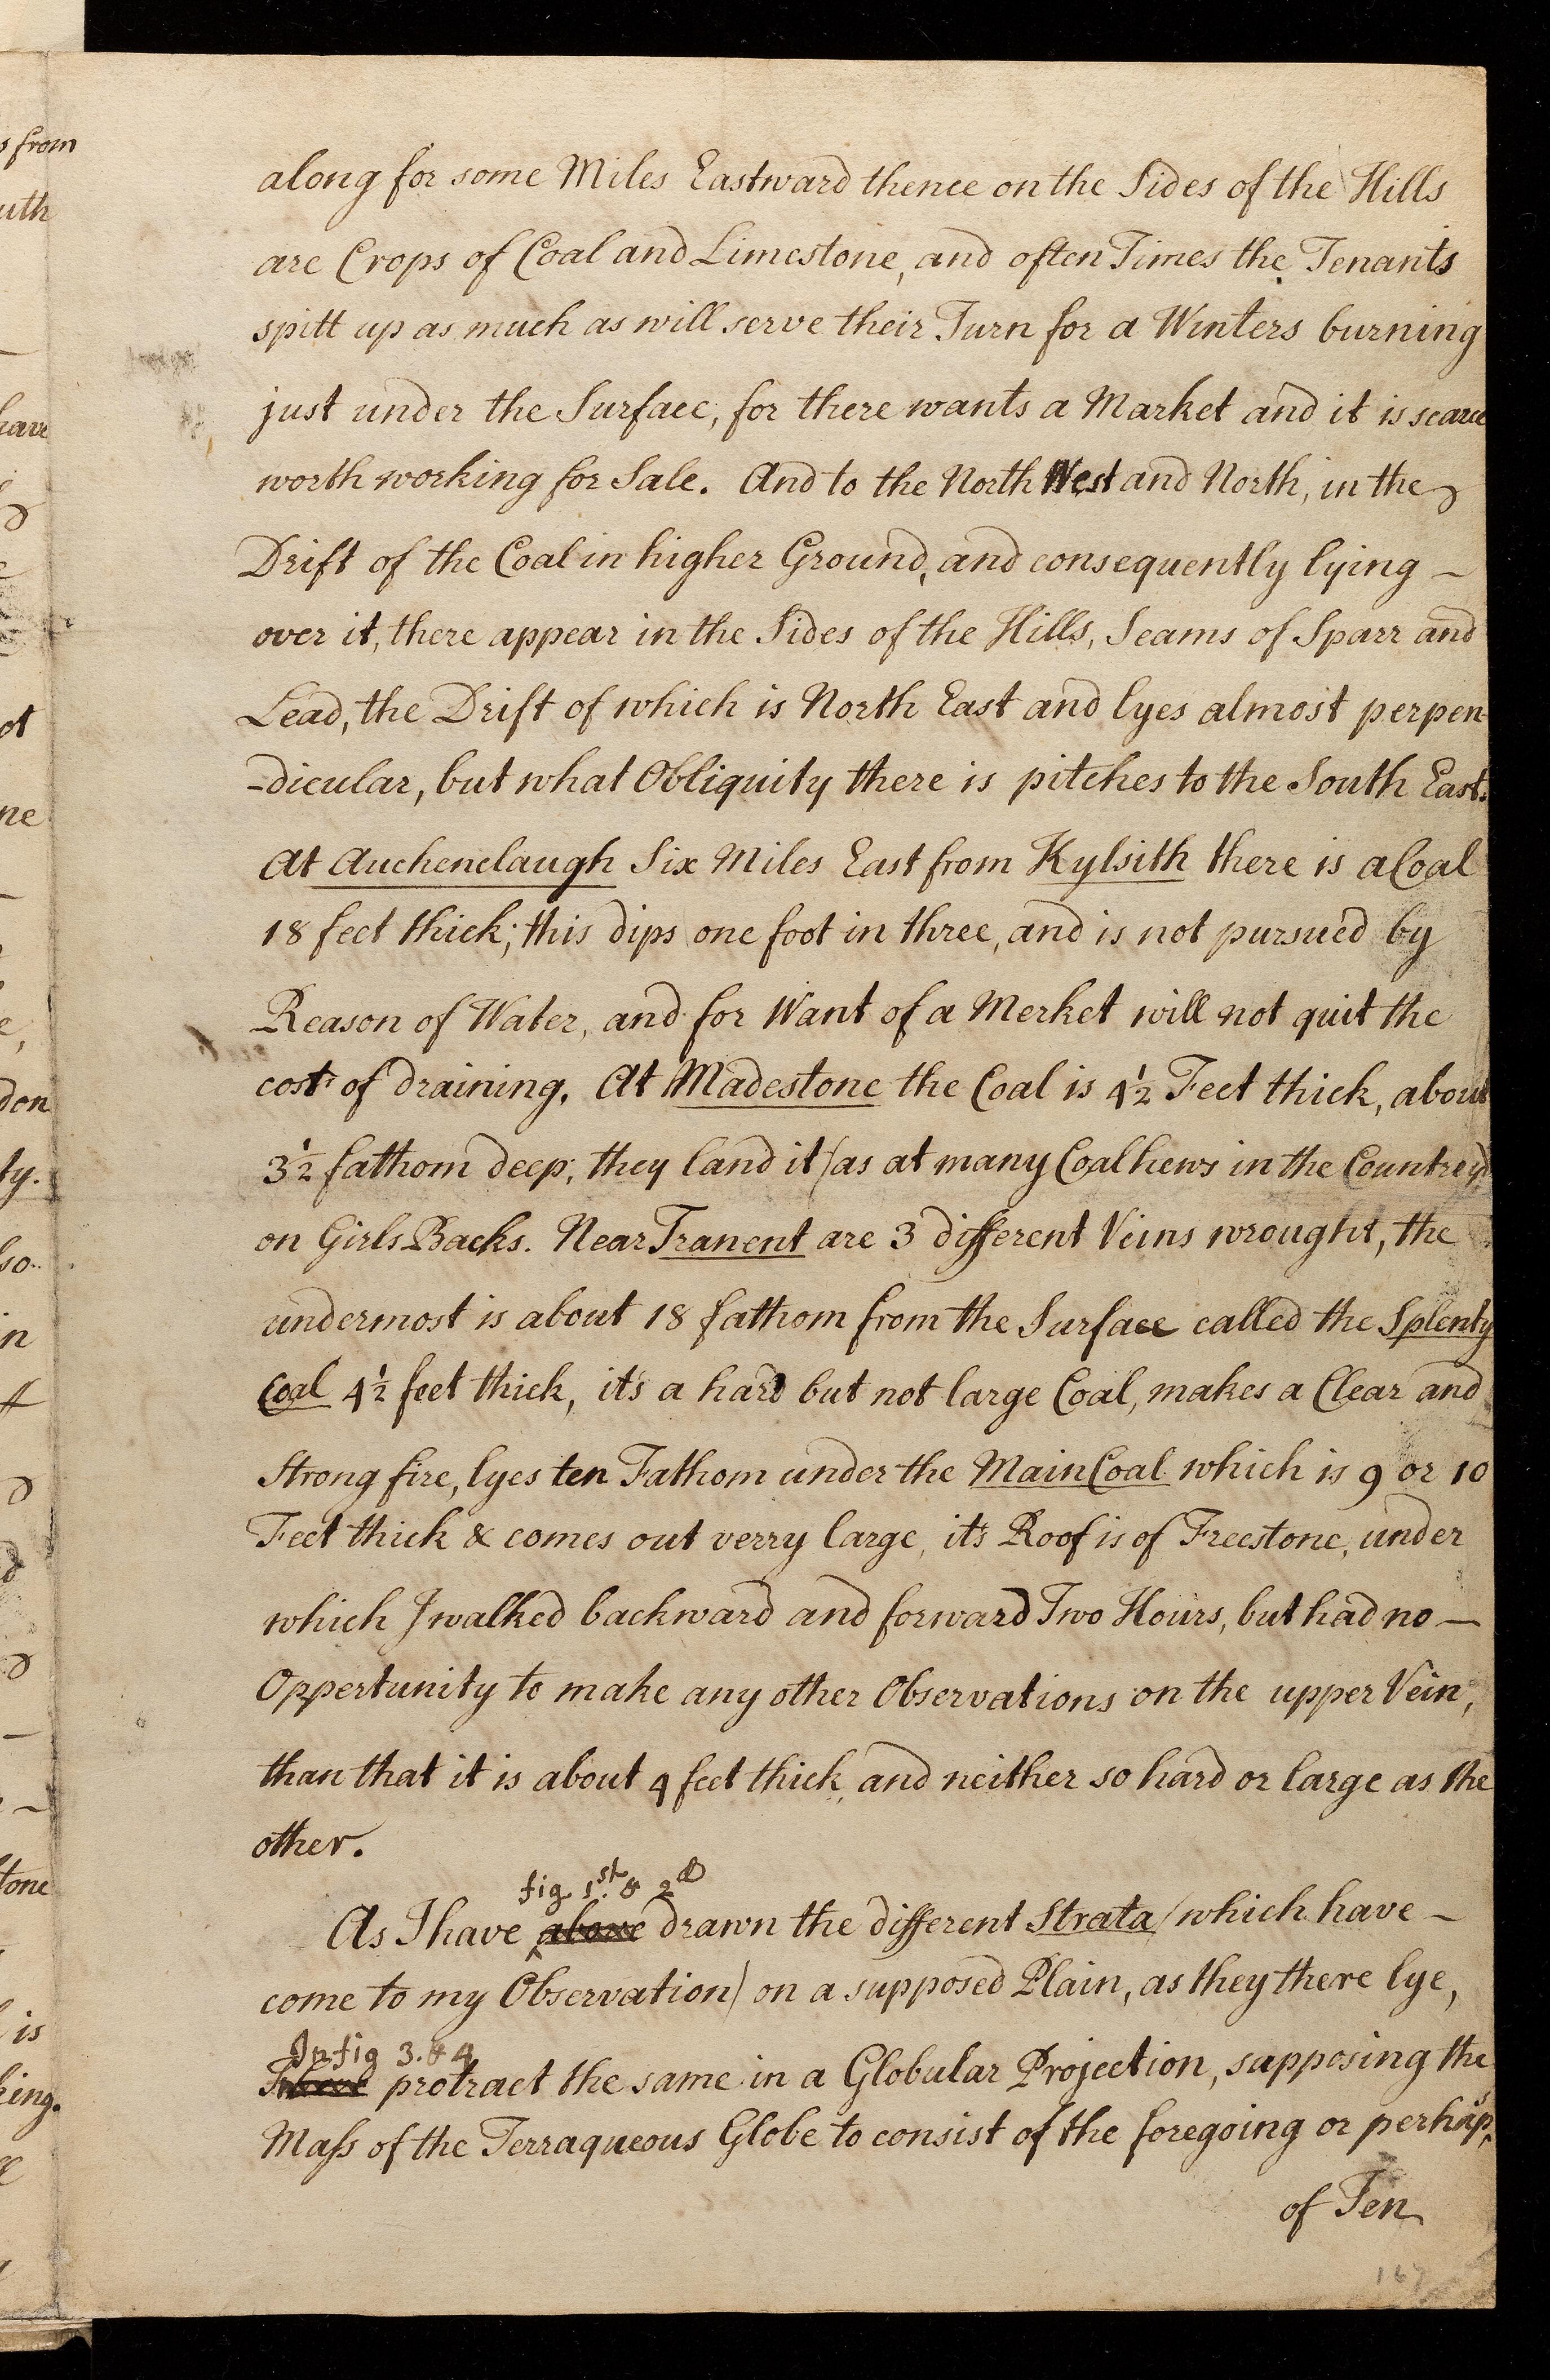 along for some Miles Eastward thence on the Sides of the Hills
are Crops of Coal and Limestone, and often Times the Tenants
spitt up as much as will serve their Turn for a Winters burning
just under the Surface, for there wants a Market and it is scarce
worth working for Sale. And to the North West and North, in the
Drift of the Coal in higher Ground, and consequently lying –
over it, there appear in the Sides of the Hills, Seams of Sparr and
Lead, the Drift of which is North East and lyes almost perpen-
-dicular, but what Obliquity there is pitches to the South East.
At Auchenclaugh Six Miles East from Kylsith there is a Coal
18 feet thick; this dips one foot in three, and is not pursued by
Reason of Water, and for Want of a Merket will not quit the
cost of draining. At Madestone the Coal is 4½ Feet thick, about
3½ fathom deep; they land it (as at many Coalhews in the Countrey)
on Girls Backs. Near Tranent are 3 different Veins wrought, the
undermost is about 18 fathom from the Surface called the Splenty
Coal 4½ feet thick, its a hard but not large Coal, makes a Clear and
Strong fire, lyes ten Fathom under the Main Coal which is 9 or 10
Feet thick & comes out verry large, its Roof is of Freestone, under
which I walked backward and forward Two Hours, but had no –
Oppertunity to make any other Observations on the upper Vein,
than that it is about 4 feet thick, and neither so hard or large as the
other.
fig. 1st. & 2d
As I have above drawn the different Strata (which have –
come to my Observation) on a supposed Plain, as they there lye,
In fig 3. & 4
protract the same in a Globular Projection, supposing the
Mass of the Terraqueous Globe to consist of the foregoing or perhaps
of Ten
167
s from
uth
have
ot
ne
don
ty.
so.
in
tone
is
king.